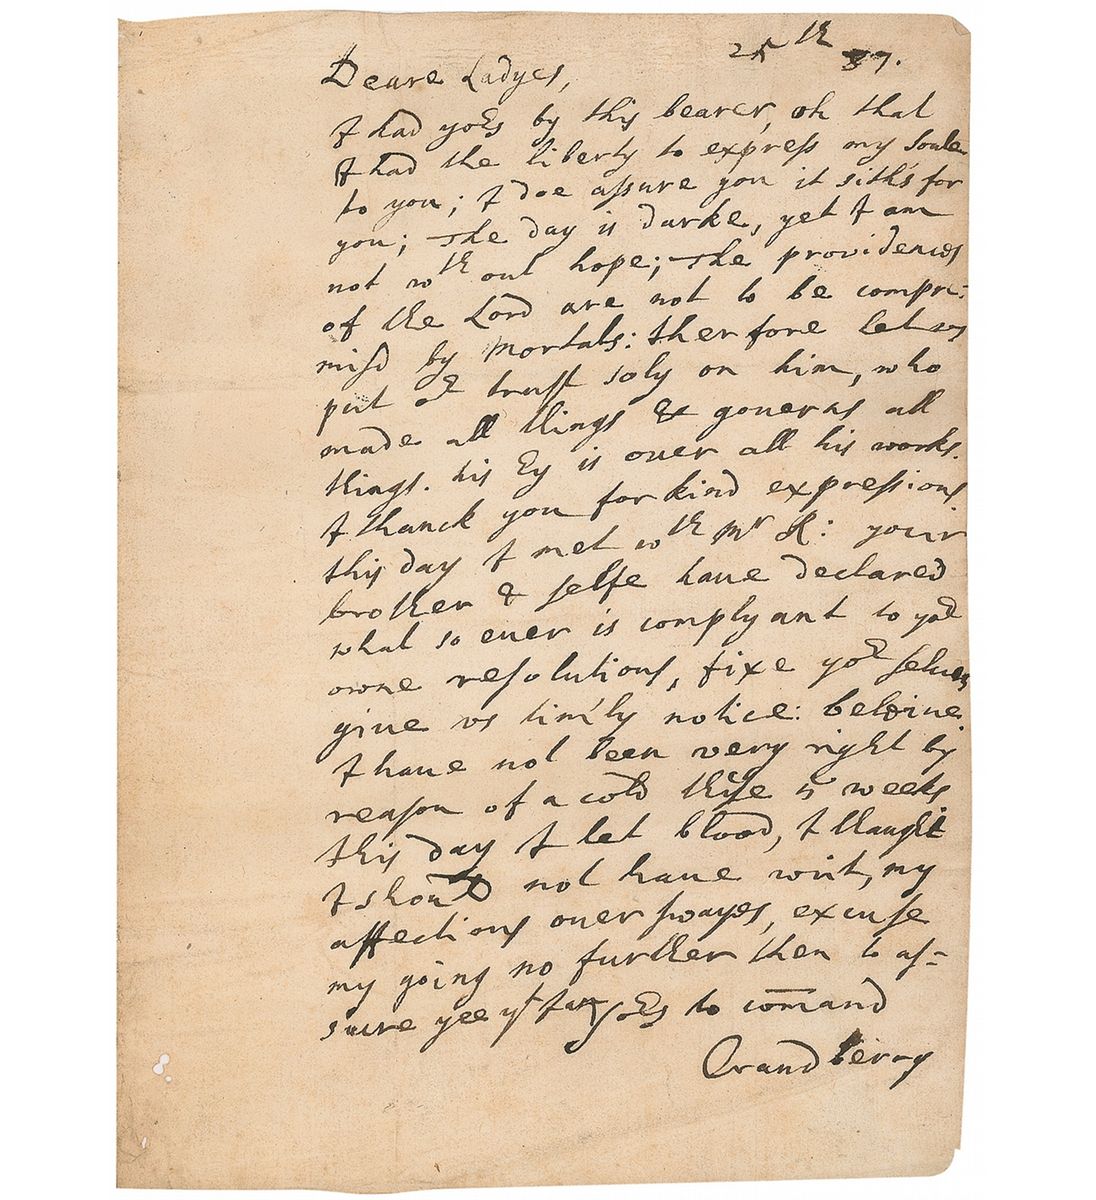 25th 37.
Deare Ladyes,
I had yoRs by this bearer, oh that
I had the liberty to express my soule
to you; I doe assure you it siths for
you; The day is darke, yet I am
not wth out hope; The providences
of the Lord are not to be compri:
misd by mortals: therfore let us
put oR trust soly on him, who
made all things & gouerns all
things. his Ey is ouer all his works.
I thanck you for kind expressions
this day I met wth Mr R: your
brother & selfe haue declared
what so euer is complyant to yoR
owne resolutions, fixe yoR selues
give vs tim'ly notice: beleiue
I haue not been very right by
reason of a cold thise 5 weeks
this day I let blood, I thaught
I shoud not haue writ, my
affections ouer swayes, excuse
my going no further then to as=
sure yee yt I am yoRs to comand
Crandberry